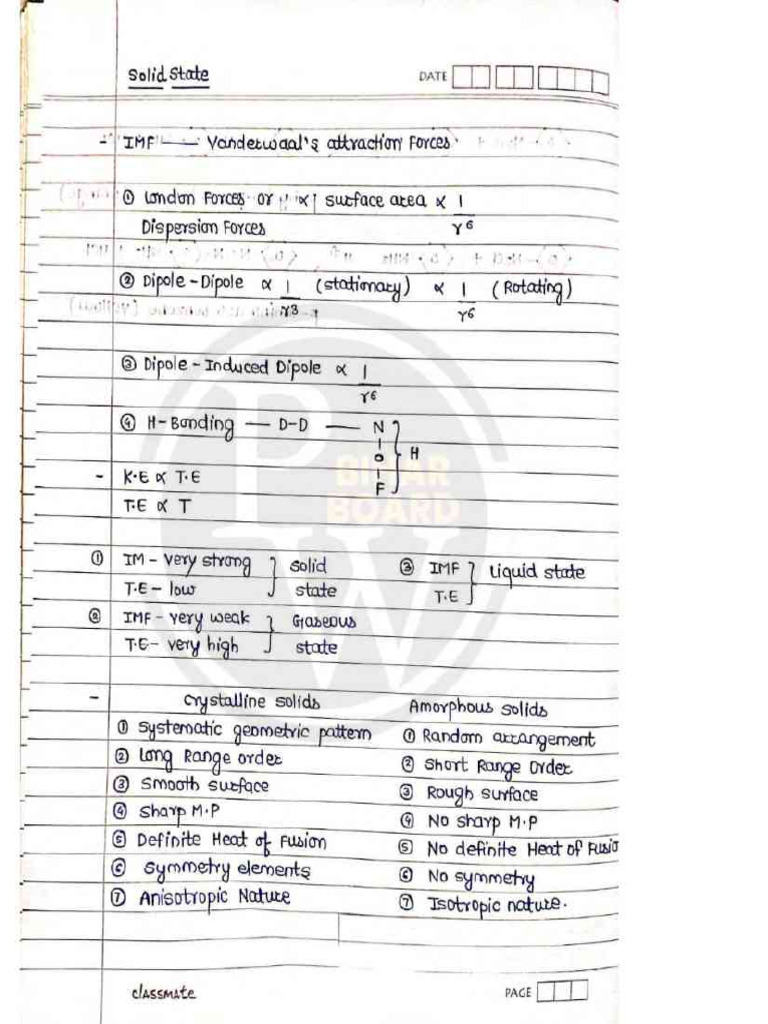 Solid State
DATE
- IMF — Vanderwaal's attraction Forces
① London Forces or ∝ surface area ∝ 1/r6
Dispersion Forces
② Dipole-Dipole ∝ 1/r3 (stationary) ∝ 1/r6 (Rotating)
③ Dipole-Induced Dipole ∝ 1/r6
④ H-Bonding — D-D — N
O H
F
- K.E ∝ T.E
T.E ∝ T
BIHAR
BOARD
PW
① IM - very strong } solid
T.E - low } state
② IMF - very weak } Gaseous
T.E - very high } state
③ IMF } Liquid state
T.E }
- Crystalline solids
① Systematic geometric pattern
② Long Range order
③ Smooth surface
④ Sharp M.P
⑤ Definite Heat of Fusion
⑥ Symmetry elements
⑦ Anisotropic Nature
Amorphous solids
① Random arrangement
② Short Range Order
③ Rough surface
④ No sharp M.P
⑤ No definite Heat of Fusio
⑥ No symmetry
⑦ Isotropic nature.
classmate
PAGE